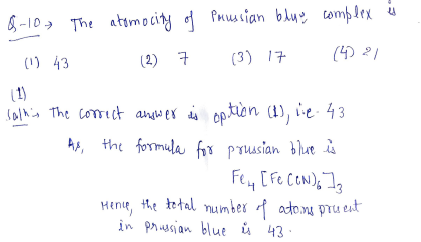 Q-10 → The atomocity of Prussian blue complex is
(1) 43 (2) 7 (3) 17 (4) 21
(1)
Soln:- The correct answer is option (1), i.e. 43
As, the formula for prussian blue is
Fe4 [Fe(CN)6]3
Hence, the total number of atoms present
in prussian blue is 43.